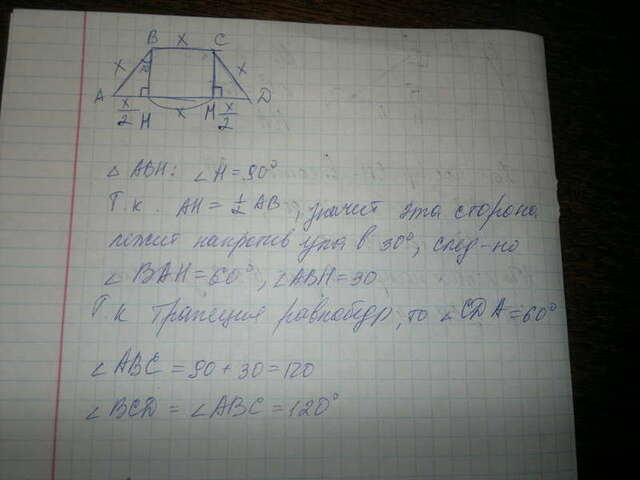 B x C
x x
A D
x/2 H x M x/2
△ ABH: ∠H = 90°
Т.к. AH = 1/2 AB, значит эта сторона
лежит напротив угла в 30°, след-но
∠ BAH = 60°, ∠ABH = 30
Т.к трапеция равнобедр, то ∠CDA = 60°
∠ABC = 90 + 30 = 120
∠BCD = ∠ABC = 120°